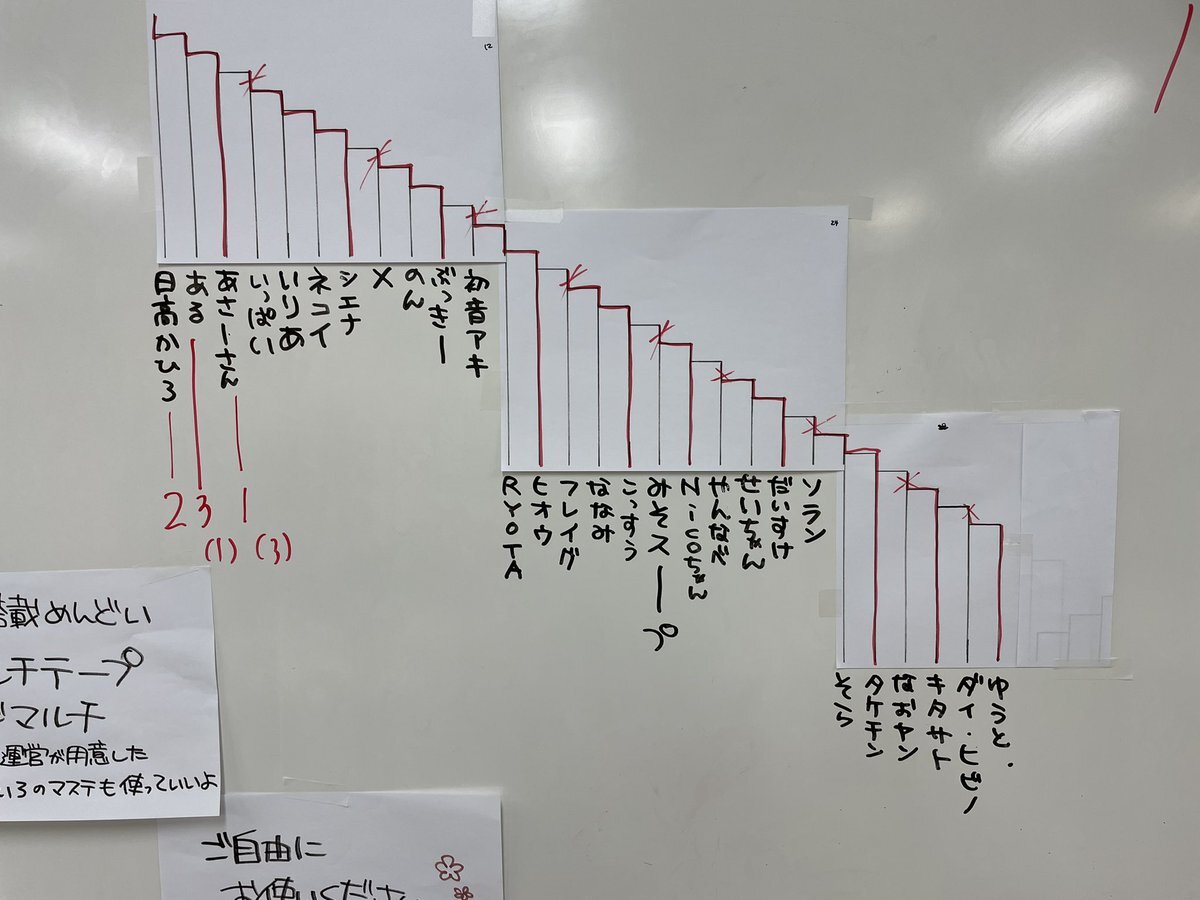 12
24
日高かひろ
ある
あさーさん
いっぱい
いりあ
ネコイ
シエナ
X
のん
ぶっきー
初音アキ
2 3 1
(1) (3)
RYOTA
ヒオウ
フレイグ
ななみ
こっすう
みそスープ
Nicoちゃん
やんなべ
せいちゃん
だいすけ
ソラン
そら
タケチン
なおヤン
キタサト
ダイ・ヒビノ
ゆうと.
載めんどい
チテープ
マルチ
運営が用意した
いろのマステも使っていいよ
ご自由に
お使いくださ